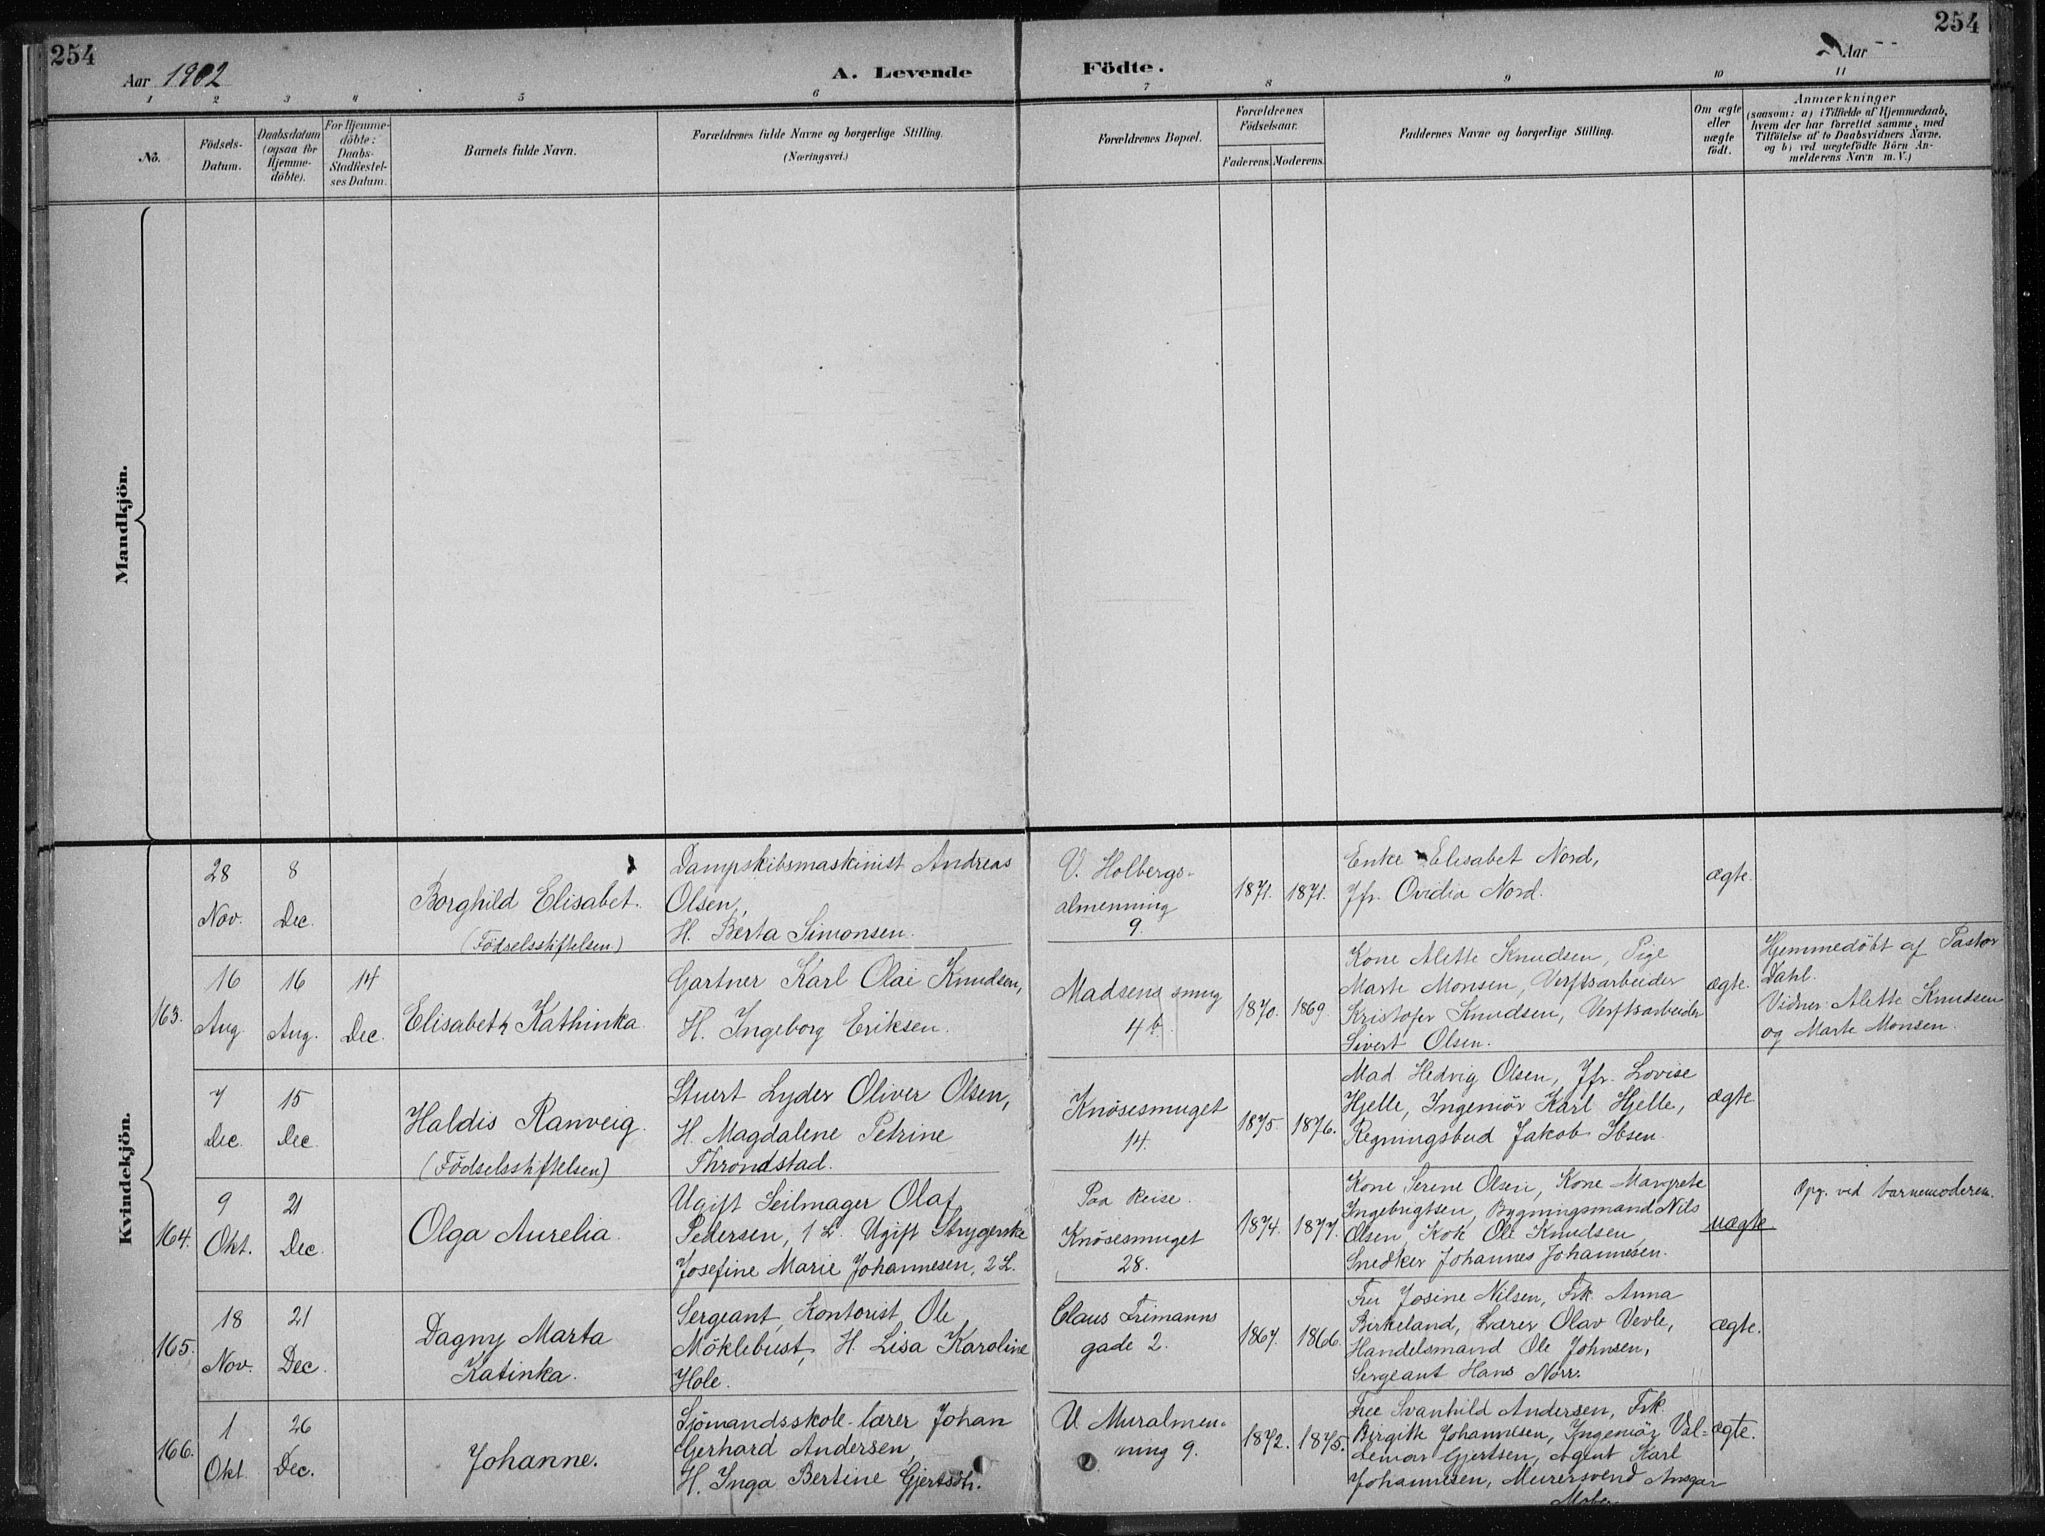 254
254
Aar 1902
A. Levende
Födte.
Aar
1
2
3
4
5
6
7
8
9
10
11
No.
Födsels-
Datum.
Daabsdatum
(ogsaa for
Hjemme-
döbte).
For Hjemme-
döbte:
Daabs-
Stadfæstel-
ses Datum.
Barnets fulde Navn.
Forældrenes fulde Navne og borgerlige Stilling.
(Næringsvei.)
Forældrenes Bopæl.
Forældrenes
Födselsaar.
Faderens.
Moderens.
Faddernes Navne og borgerlige Stilling.
Om ægte
eller
uægte
födt.
Anmærkninger
(saasom: a) i Tilfælde af Hjemmedaab,
hvem der har forrettet samme, med
Tilföielse af to Daabsvidners Navne,
og b) ved uægtefödte Börn An-
melderens Navn m. V.)
Mandkjön.
Kvindekjön.
28
Nov.
8
Dec.
Borghild Elisabet.
(Födselsstiftelsen)
Dampskibsmaskinist Andreas
Olsen,
H. Berta Simonsen.
V. Holbergs-
almenning
9.
1871.
1871.
Enke Elisabet Nord,
Jfr. Ovidia Nord.
ægte
163.
16
Aug
16
Aug.
14
Dec.
Elisabeth Kathinka
Gartner Karl Olai Knudsen,
H. Ingeborg Eriksen.
Madsens smug
4b.
1870.
1869
Kone Alette Knudsen, Pige
Marte Monsen, Verftsarbeider
Kristofer Knudsen, Verftsarbeider
Sivert Olsen.
ægte.
Hjemmedöbt af Pastor
Dahl.
Vidner: Alette Knudsen
og Marte Monsen.
7
Dec.
15
Dec.
Haldis Ranveig.
(Födselsstiftelsen)
Stuert Lyder Oliver Olsen,
H. Magdalene Petrine
Throndstad.
Knösesmuget
14.
1875.
1876.
Mad. Hedvig Olsen, Jfr. Lovise
Hjelle, Ingeniör Karl Hjelle,
Regningsbud Jakob Ibsen.
ægte
164.
9
Okt.
21
Dec.
Olga Aurelia.
Ugift Seilmager Olaf
Pedersen, 1 L. Ugift Strygerske
Josefine Marie Johannesen, 2 L.
Paa Reise.
Knösesmuget
28.
1874.
1877.
Kone Serine Olsen, Kone Margrete
Ingebrigtsen, Bygningsmand Nils
Olsen, Kok Ole Knudsen,
Snedker Johannes Johannesen.
uægte
Opg. ved barnemoderen.
165.
18
Nov.
21
Dec.
Dagny Marta
Katinka.
Sergeant, Kontorist Ole
Möklebust, H. Lisa Karoline
Hole.
Claus Frimanns
gade 2.
1867.
1866.
Fru Josine Nilsen, Frk. Anna
Birkeland, Lærer Olav Vevle,
Handelsmand Ole Johnsen,
Sergeant Hans Nörr.
ægte.
166.
1
Okt.
26
Dec.
Johanne.
Sjömandsskole-lærer Johan
Gerhard Andersen,
H. Inga Bertine Gjertsen.
V. Muralmen-
ning 9.
1872.
1875.
Fru Svanhild Andersen, Frk.
Birgitte Johannesen, Ingeniör Val-
demar Gjertsen, Agent Karl
Johannesen, Murersvend Ansgar
ægte.